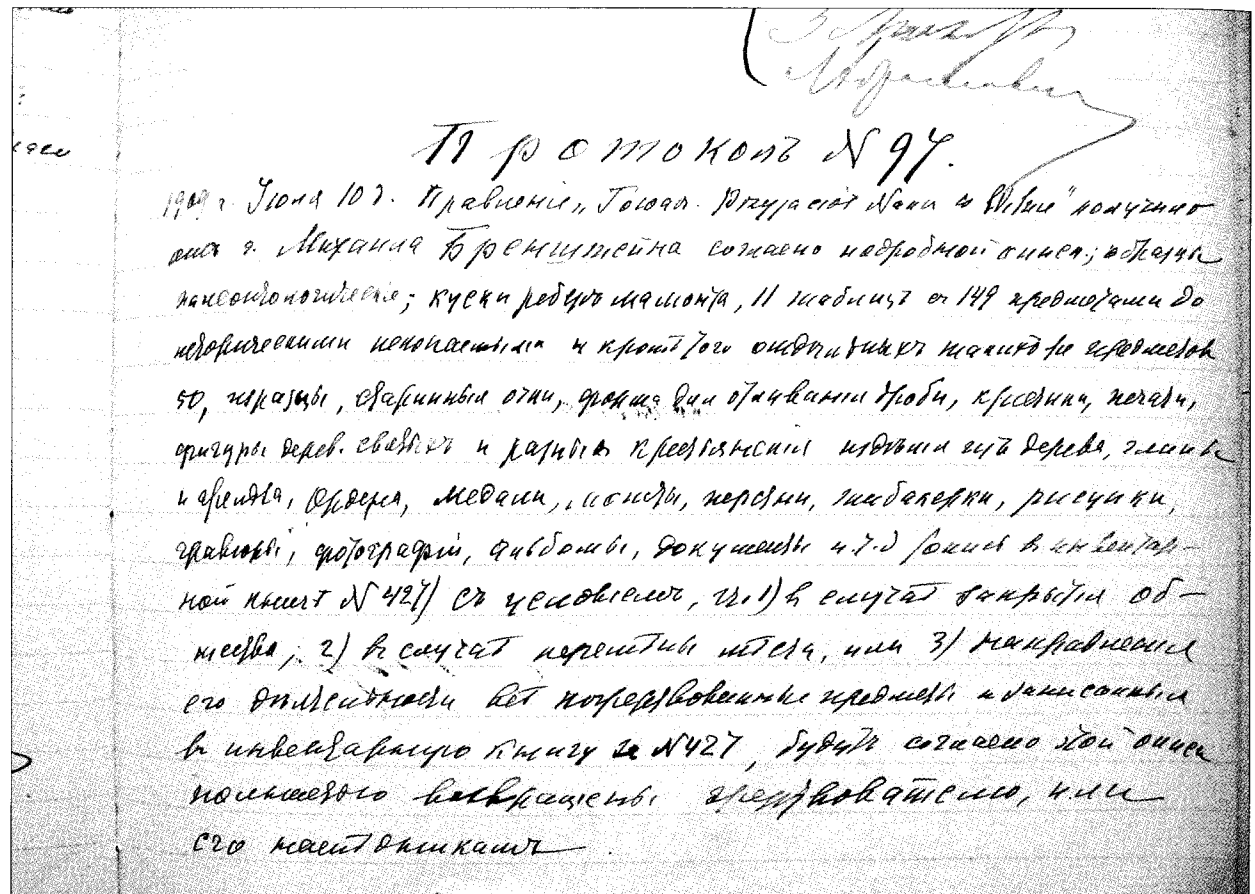 Протоколъ N 97.
1909 г. Іюля 10 д. Правленіе „Towar. Przyjaciół Nauk w Wilnie" получило
отъ г. Михаила Бренштейна согласно подробной описи; образцы
палеонтологическіе; куски реберъ мамонта, 11 таблицъ съ 149 предметами до
историческими ископаемыми и кромѣ того отдѣльныхъ таких же предметовъ
50, изразцы, старинныя очки, форма для отливанія дроби, крестики, печати,
фигуры дерев. святыхъ и разныя крестьянскія издѣлія изъ дерева, глины
и, Ордера, медали, монеты, перстни, табакерки, рисунки,
гравюры, фотографіи, альбомы, документы и т.д (опись в инвентар-
ной книгѣ N 427) съ условіемъ, что 1) в случаѣ закрытія об-
щества, 2) в случаѣ перемѣны мѣста, или 3) направленія
его дѣятельности всѣ пожертвованные предметы и записанныя
в инвентарную книгу за N 427, будутъ согласно этой описи
полностью возвращены жертвователю, или
его наслѣдникамъ.